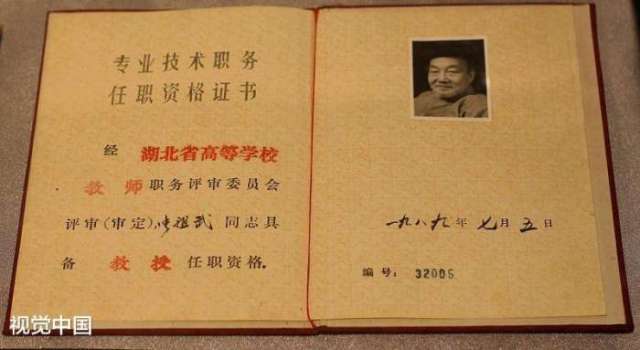 专业技术职务
任职资格证书
经 湖北省高等学校
教师职务评审委员会
评审(审定), 同志具
备 教授 任职资格.
一九八九年七月五日
编号: 32005
视觉中国